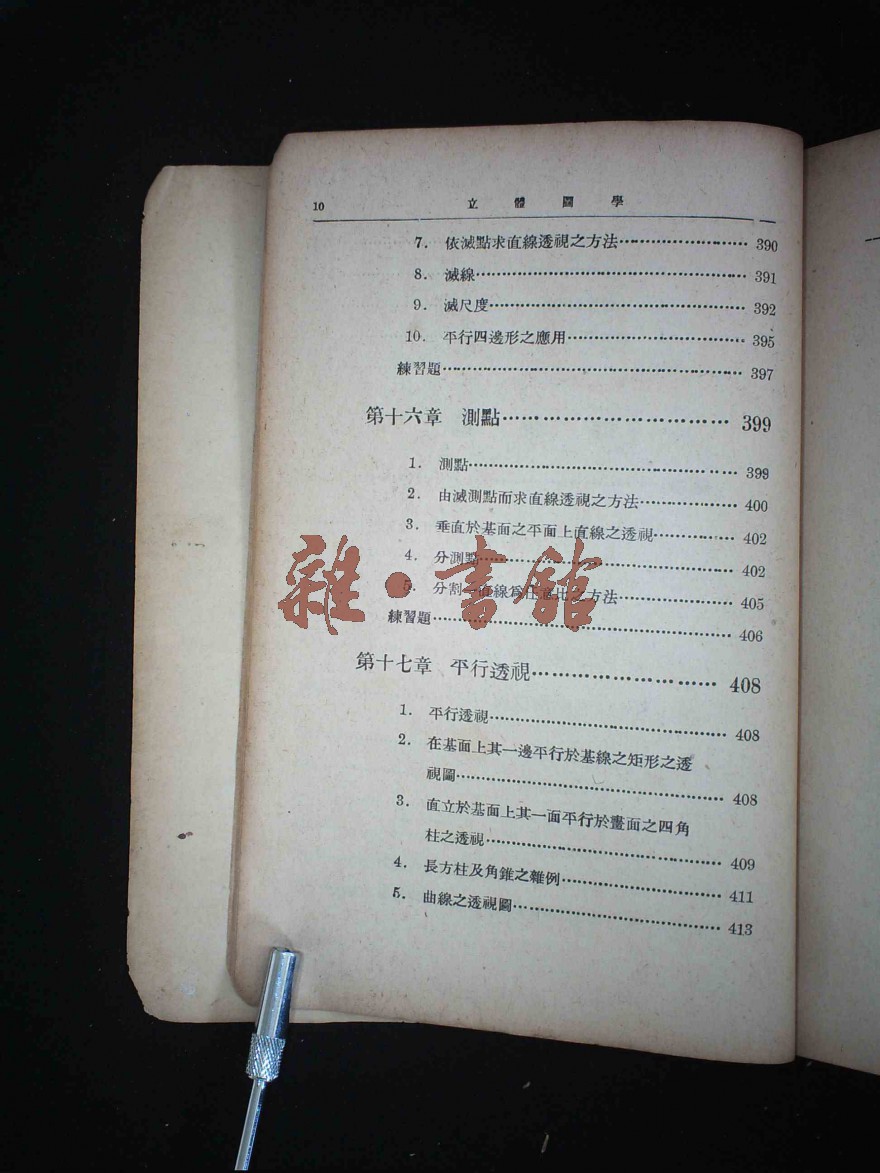 10 立體圖學
7. 依滅點求直線透視之方法 390
8. 滅線 391
9. 滅尺度 392
10. 平行四邊形之應用 395
練習題 397
第十六章 測點 399
1. 測點 399
2. 由滅測點而求直線透視之方法 400
3. 垂直於基面之平面上直線之透視 402
4. 分測點 402
5. 分割一直線爲任意比之方法 405
練習題 406
第十七章 平行透視 408
1. 平行透視 408
2. 在基面上其一邊平行於基線之矩形之透
視圖 408
3. 直立於基面上其一面平行於畫面之四角
柱之透視 409
4. 長方柱及角錐之雜例 411
5. 曲線之透視圖 413
雜·書館